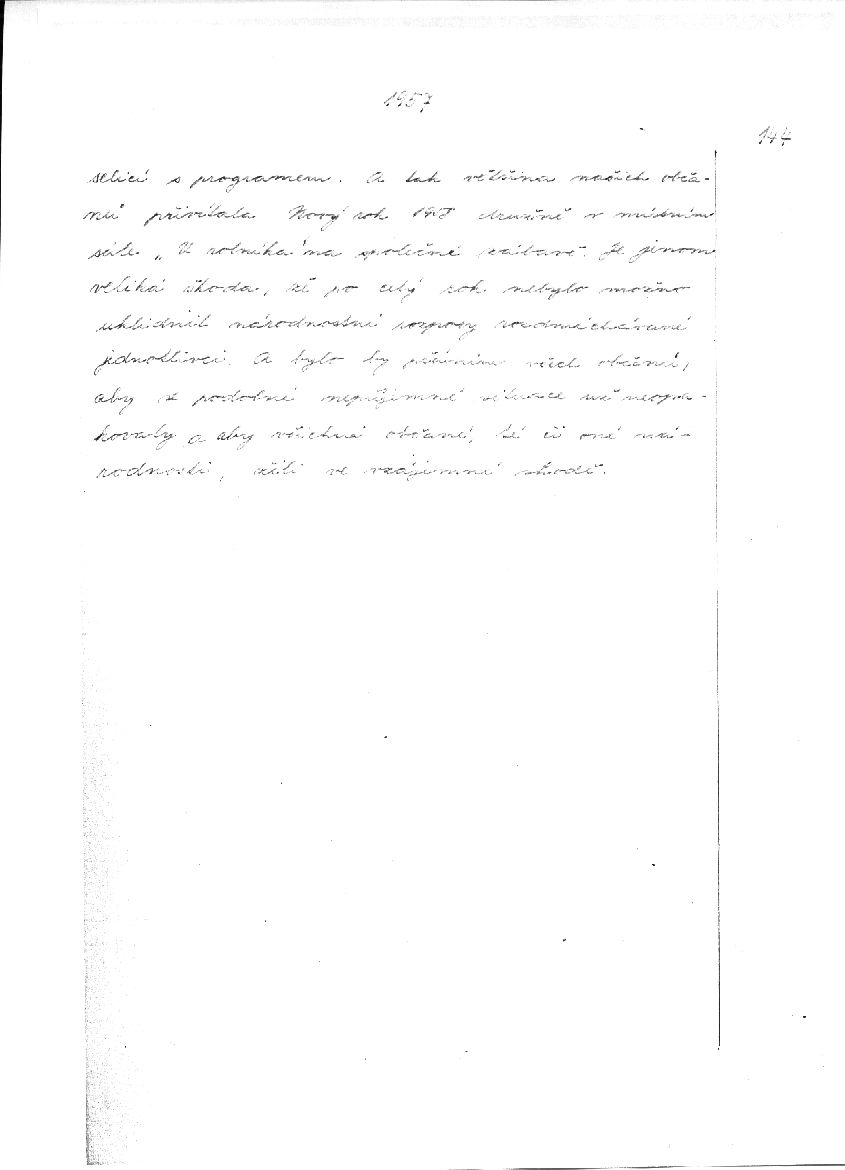 1957
144
selicí s programem. A tak většina našich obča-
nů přivítala Nový rok 1958 družně v místním
sále „U rolníka" na společné zábavě. Je jenom
veliká škoda, že po celý rok nebylo možno
uklidnit národnostní rozpory rozdmýchávané
jednotlivci. A bylo by přáním všech občanů,
aby se podobné nepříjemné situace už neopa-
kovaly a aby všichni občané, té či oné ná-
rodnosti, žili ve vzájemné shodě.